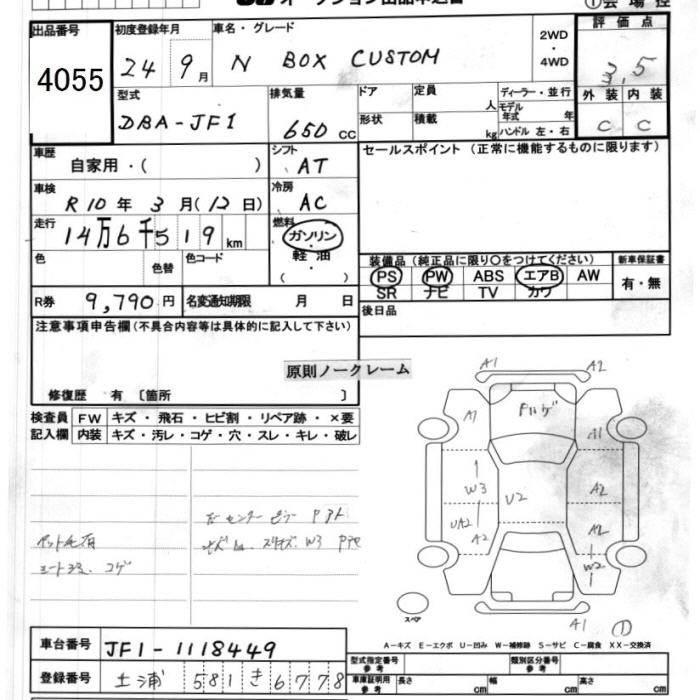 出品番号 初度登録年月 車名・グレード 2WD・4WD 評価点
4055 24 9月 N BOX CUSTOM 3.5
型式 排気量 ドア 定員 人 ディーラー・並行 外装 内装
DBA-JF1 650 CC 形状 積載 kg モデル年式 年 ハンドル 左・右 C C
車歴 自家用・( ) シフト AT セールスポイント (正常に機能するものに限ります)
車検 R10年 3月(12日) 冷房 AC
走行 14万6千519km 燃料 ガソリン・軽油・( )
色 色替 色コード 装備品 (純正品に限り○をつけてください) 新車保証書
PS PW ABS エアB AW 有・無
SR ナビ TV カワ
R券 9,790円 名変通知期限 月 日 後日品
注意事項申告欄 (不具合内容等は具体的に記入して下さい)
原則ノークレーム
修復歴 有 〔箇所 〕
検査員記入欄 FW キズ・飛石・ヒビ割・リペア跡・×要
内装 キズ・汚レ・コゲ・穴・スレ・キレ・破レ
A1 A2
A1
W3 U2 A2
UA2 A2 A2
W2
コゲ
スペア
A1 ①
A-キズ E-エクボ U-凹み W-補修跡 S-サビ C-腐食 XX-交換済
車台番号 JF1-1118449
型式指定番号 参考 類別区分番号 参考
登録番号 土浦 581 き 6778
車庫証明用 参考 長さ cm 幅 cm 高さ cm